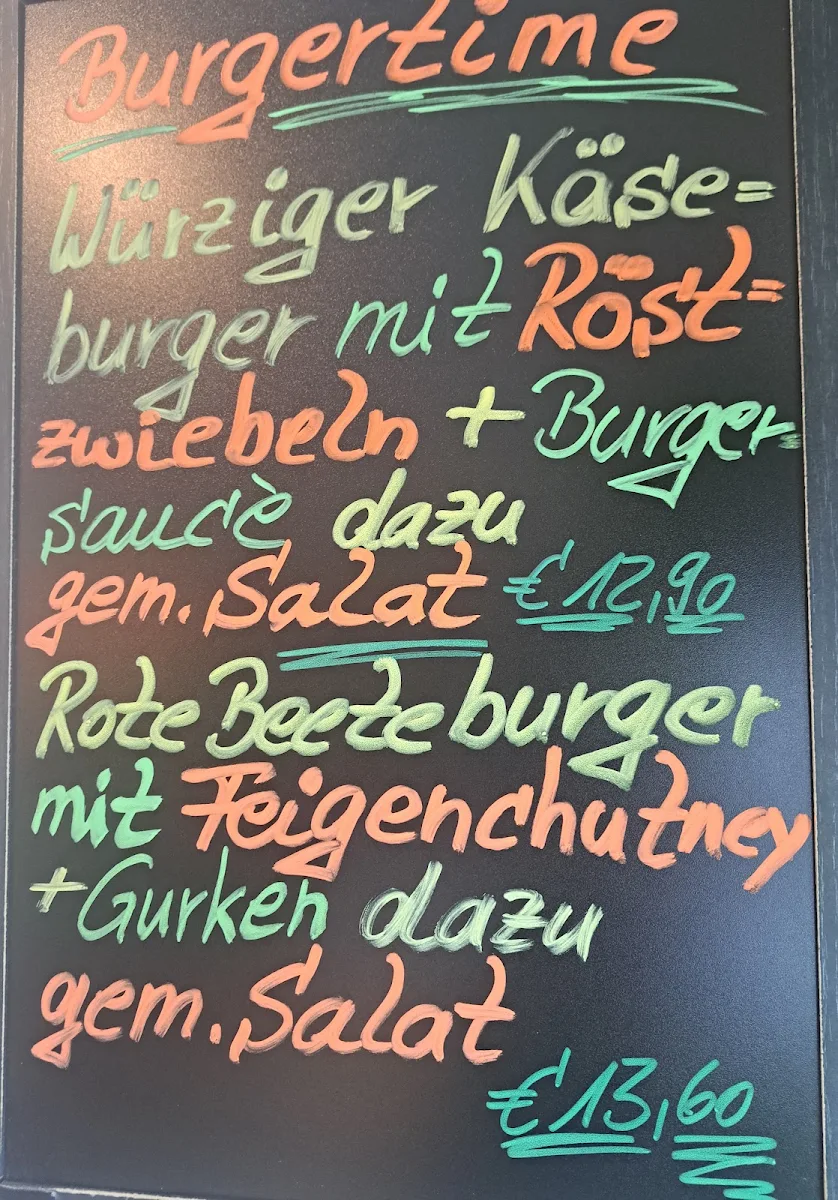 Burgertime
Würziger Käse=
burger mit Röst=
zwiebeln + Burger=
saucè dazu
gem. Salat €12,90
Rote Beete burger
mit Feigenchutney
+ Gurken dazu
gem. Salat
€13,60